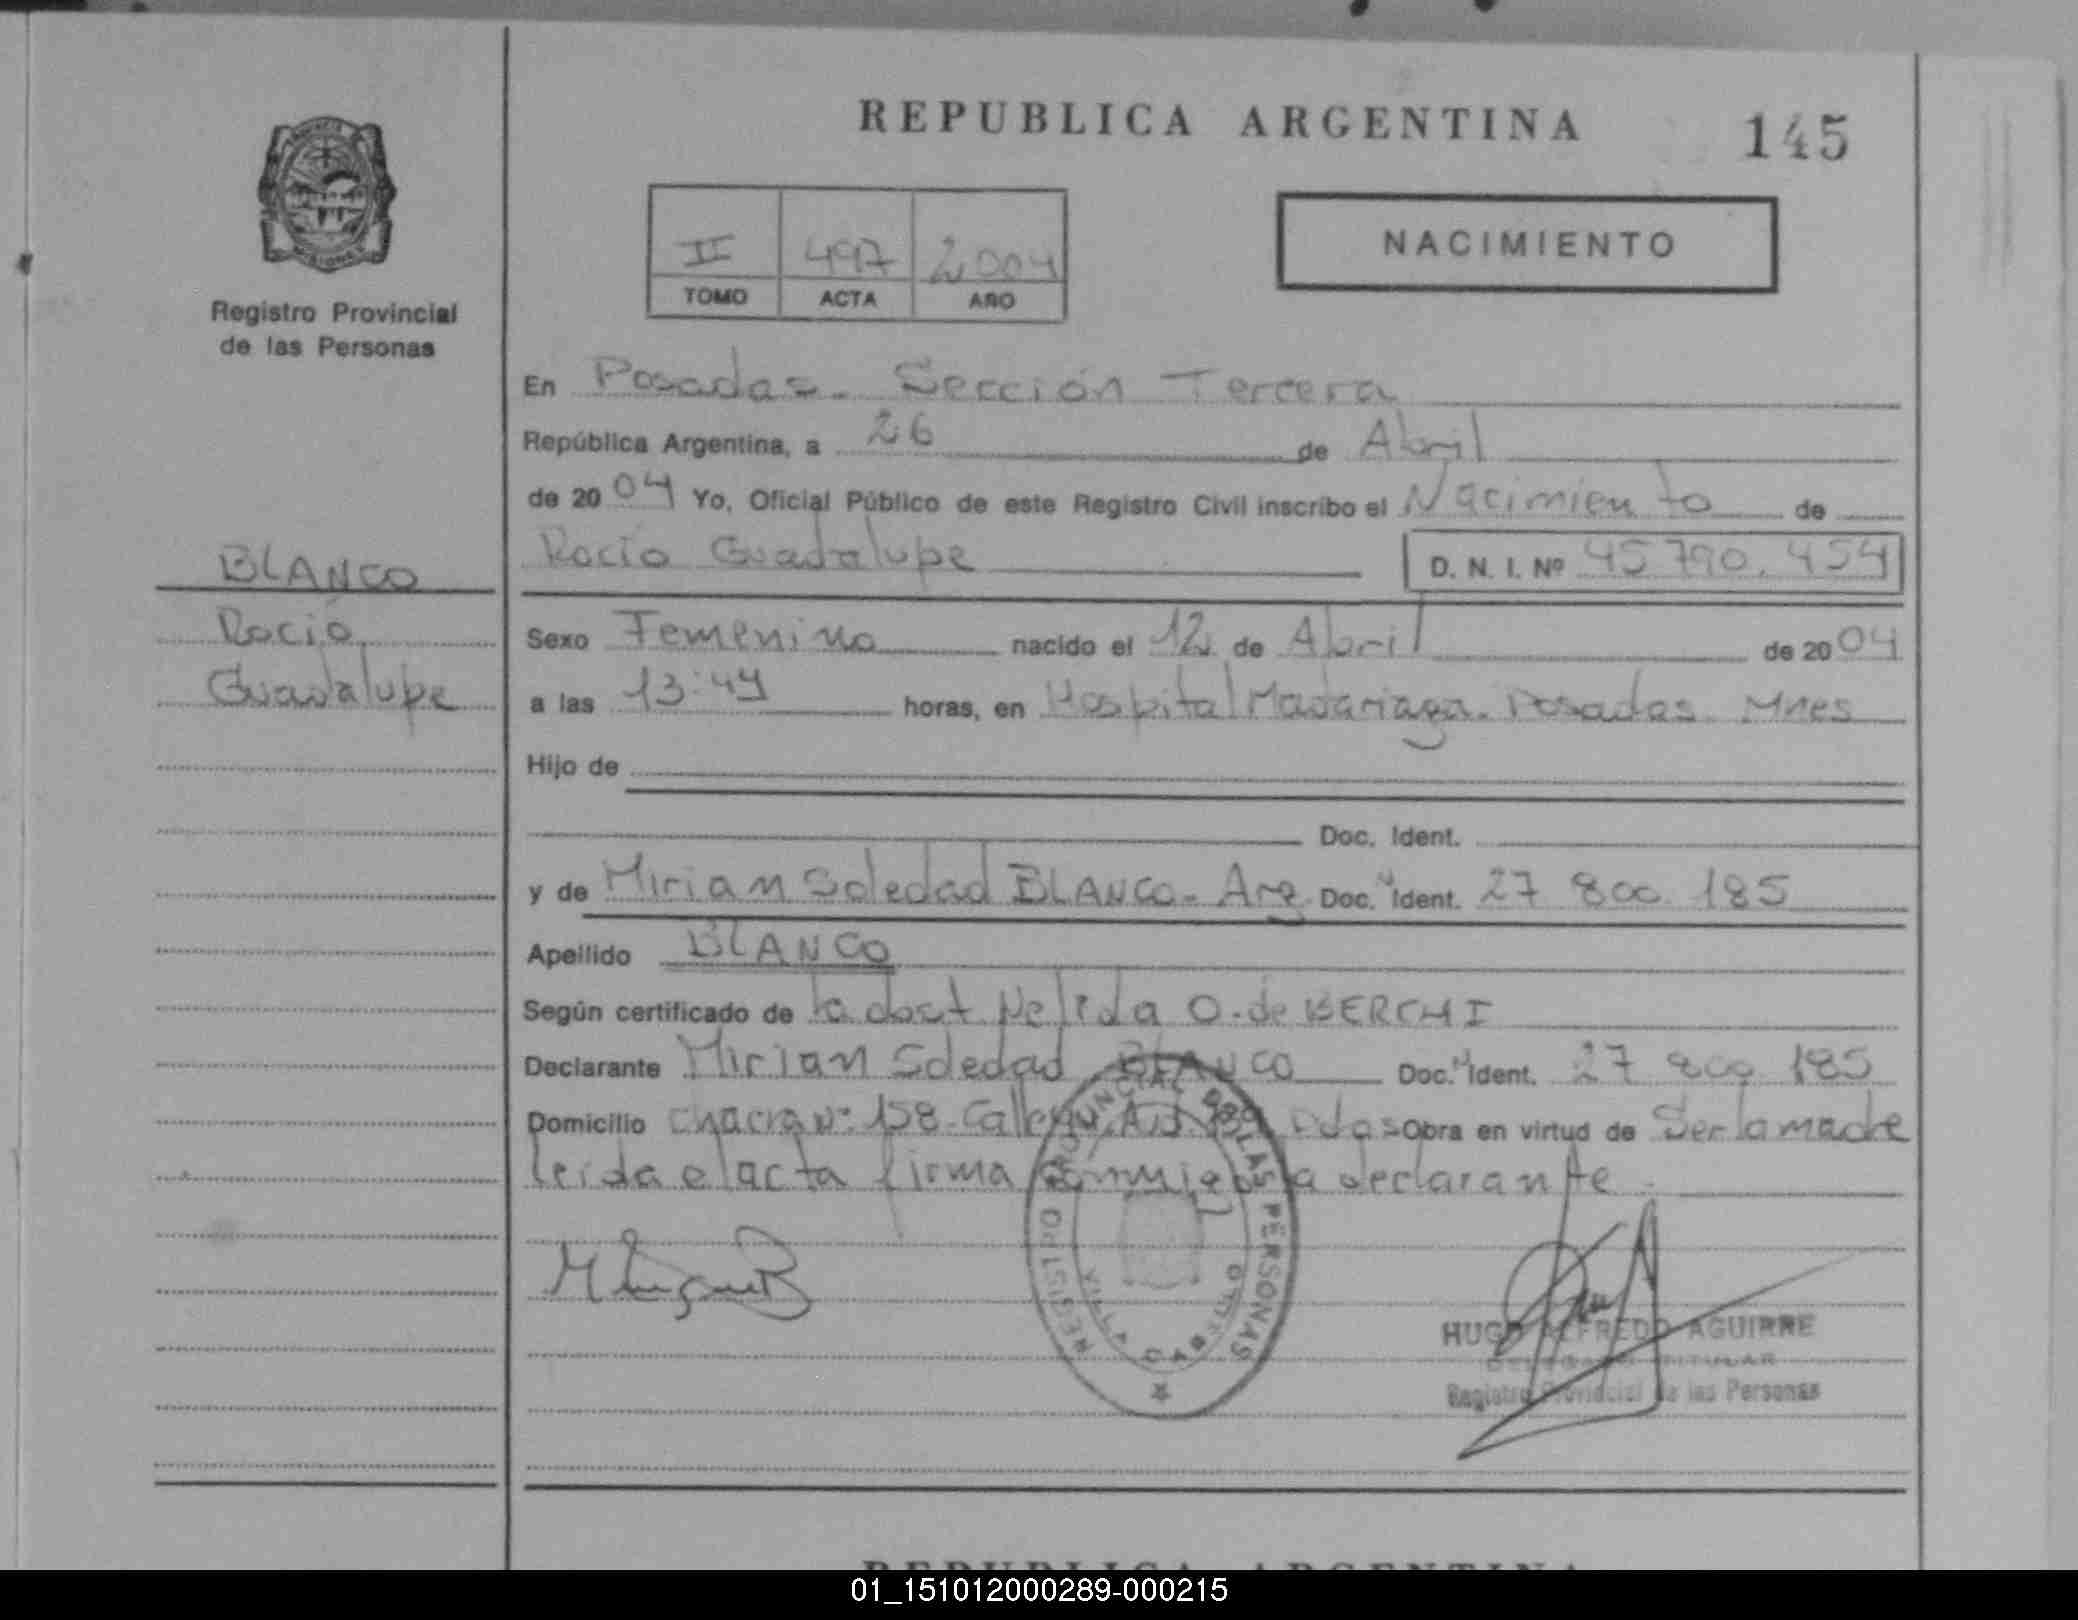 REPUBLICA ARGENTINA
145
PROVINCIA
MISIONES
Registro Provincial
de las Personas
II 497 2004
TOMO ACTA AÑO
NACIMIENTO
En Posadas - Sección Tercera
República Argentina, a 26 de Abril
de 2004 Yo, Oficial Público de este Registro Civil inscribo el Nacimiento de
Rocio Guadalupe D. N. I. Nº 45 790. 454
BLANCO
Rocio
Guadalupe
Sexo Femenino nacido el 12 de Abril de 2004
a las 13:49 horas, en Hospital Madariaga. Posadas. Mnes
Hijo de
Doc. Ident.
y de Mirian Soledad BLANCO - Arg. Doc. Ident. 27 800. 185
Apellido BLANCO
Según certificado de la obst Nelida O. de BERCHI
Declarante Mirian Soledad BLANCO Doc. Ident. 27 800 185
Domicilio chacra nº 158 - Calle Pdas Obra en virtud de Ser la madre
leida el acta firma conmigo la declarante
REGISTRO PROVINCIAL DE LAS PERSONAS
VILLA CABELLO
HUGO ALFREDO AGUIRRE
DELEGADO TITULAR
Registro Provincial de las Personas
REPUBLICA ARGENTINA
01_151012000289-000215